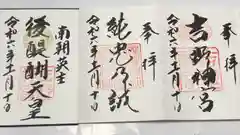 奉拝
吉野神宮
令和六年十一月十日
奉拝
純忠
令和六年十一月十日
南朝英主
後醍醐天皇
令和六年十一月十日